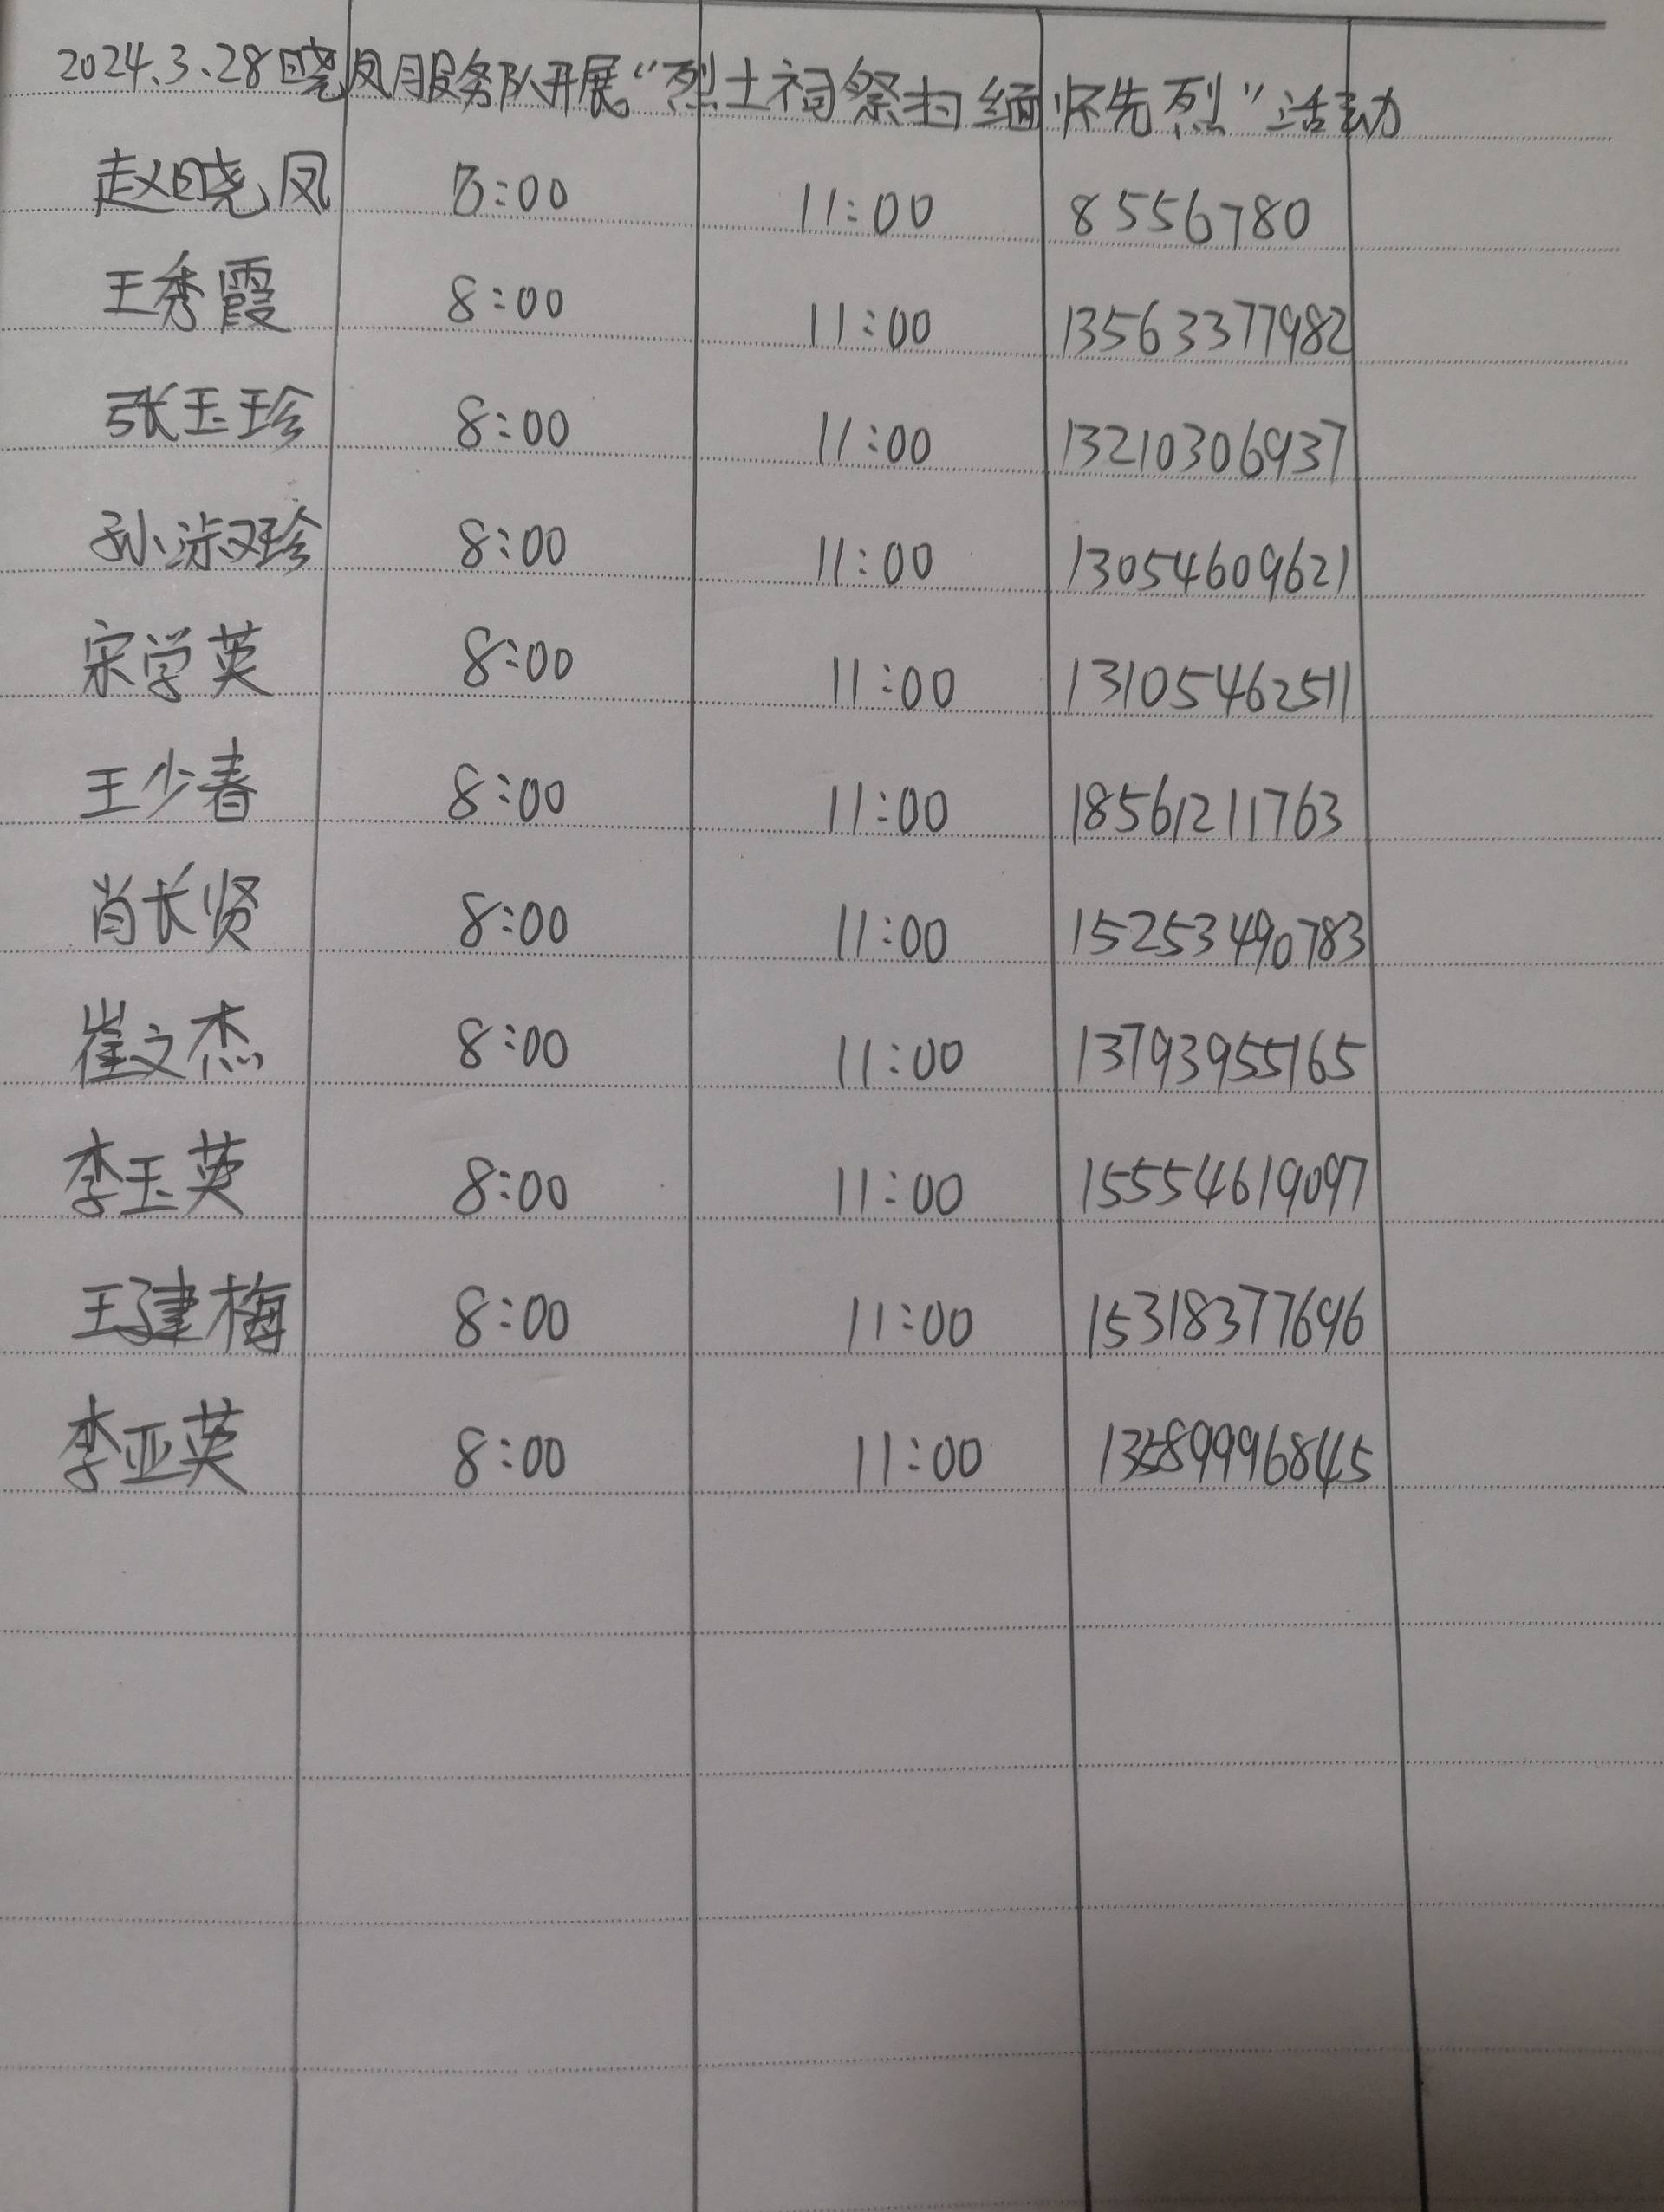 2024.3.28晓凤服务队开展“烈士祠祭扫缅怀先烈”活动
赵晓凤 8:00 11:00 8556780
王秀霞 8:00 11:00 13563377982
张玉珍 8:00 11:00 13210306937
孙淑珍 8:00 11:00 13054609621
宋学英 8:00 11:00 13105462511
王少春 8:00 11:00 18561211763
肖长贤 8:00 11:00 15253490783
崔文杰 8:00 11:00 13793955165
李玉英 8:00 11:00 15554619097
王建梅 8:00 11:00 15318377696
李亚英 8:00 11:00 13589996845